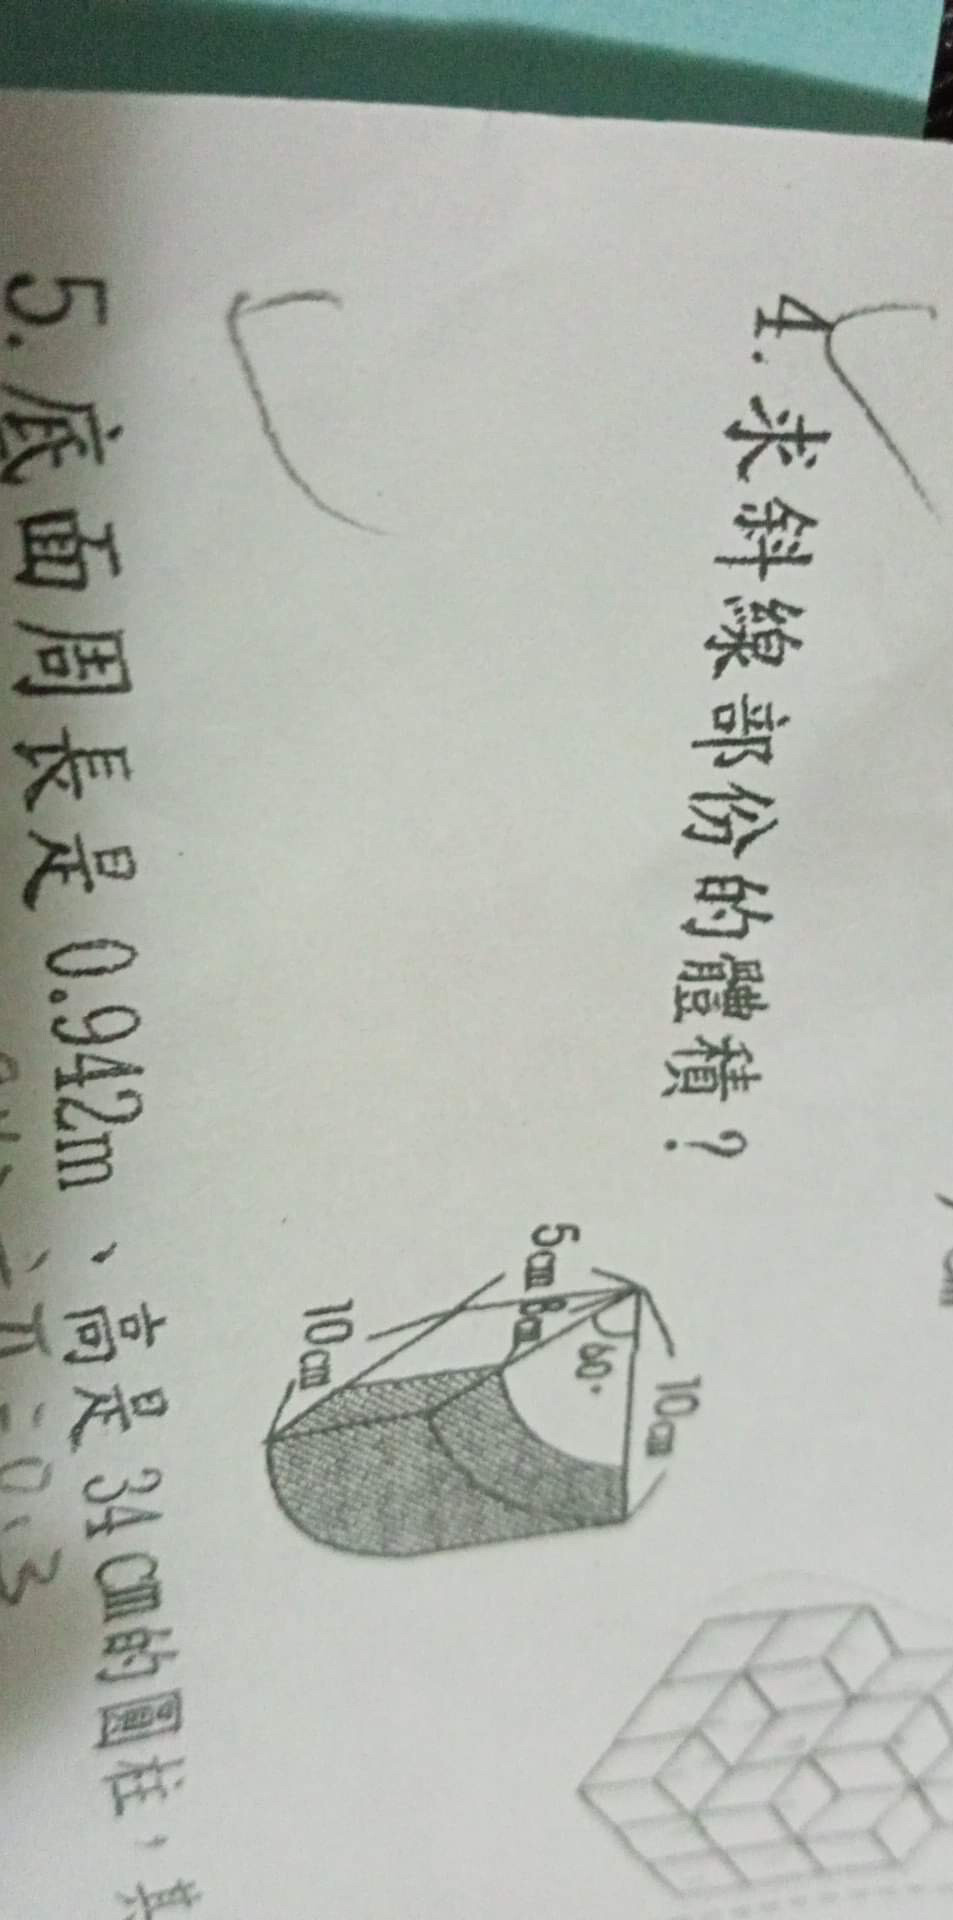 4. 求斜線部份的體積？
10cm
60°
5cm
8cm
10cm
5. 底面周長是0.942m、高是34cm的圓柱，其